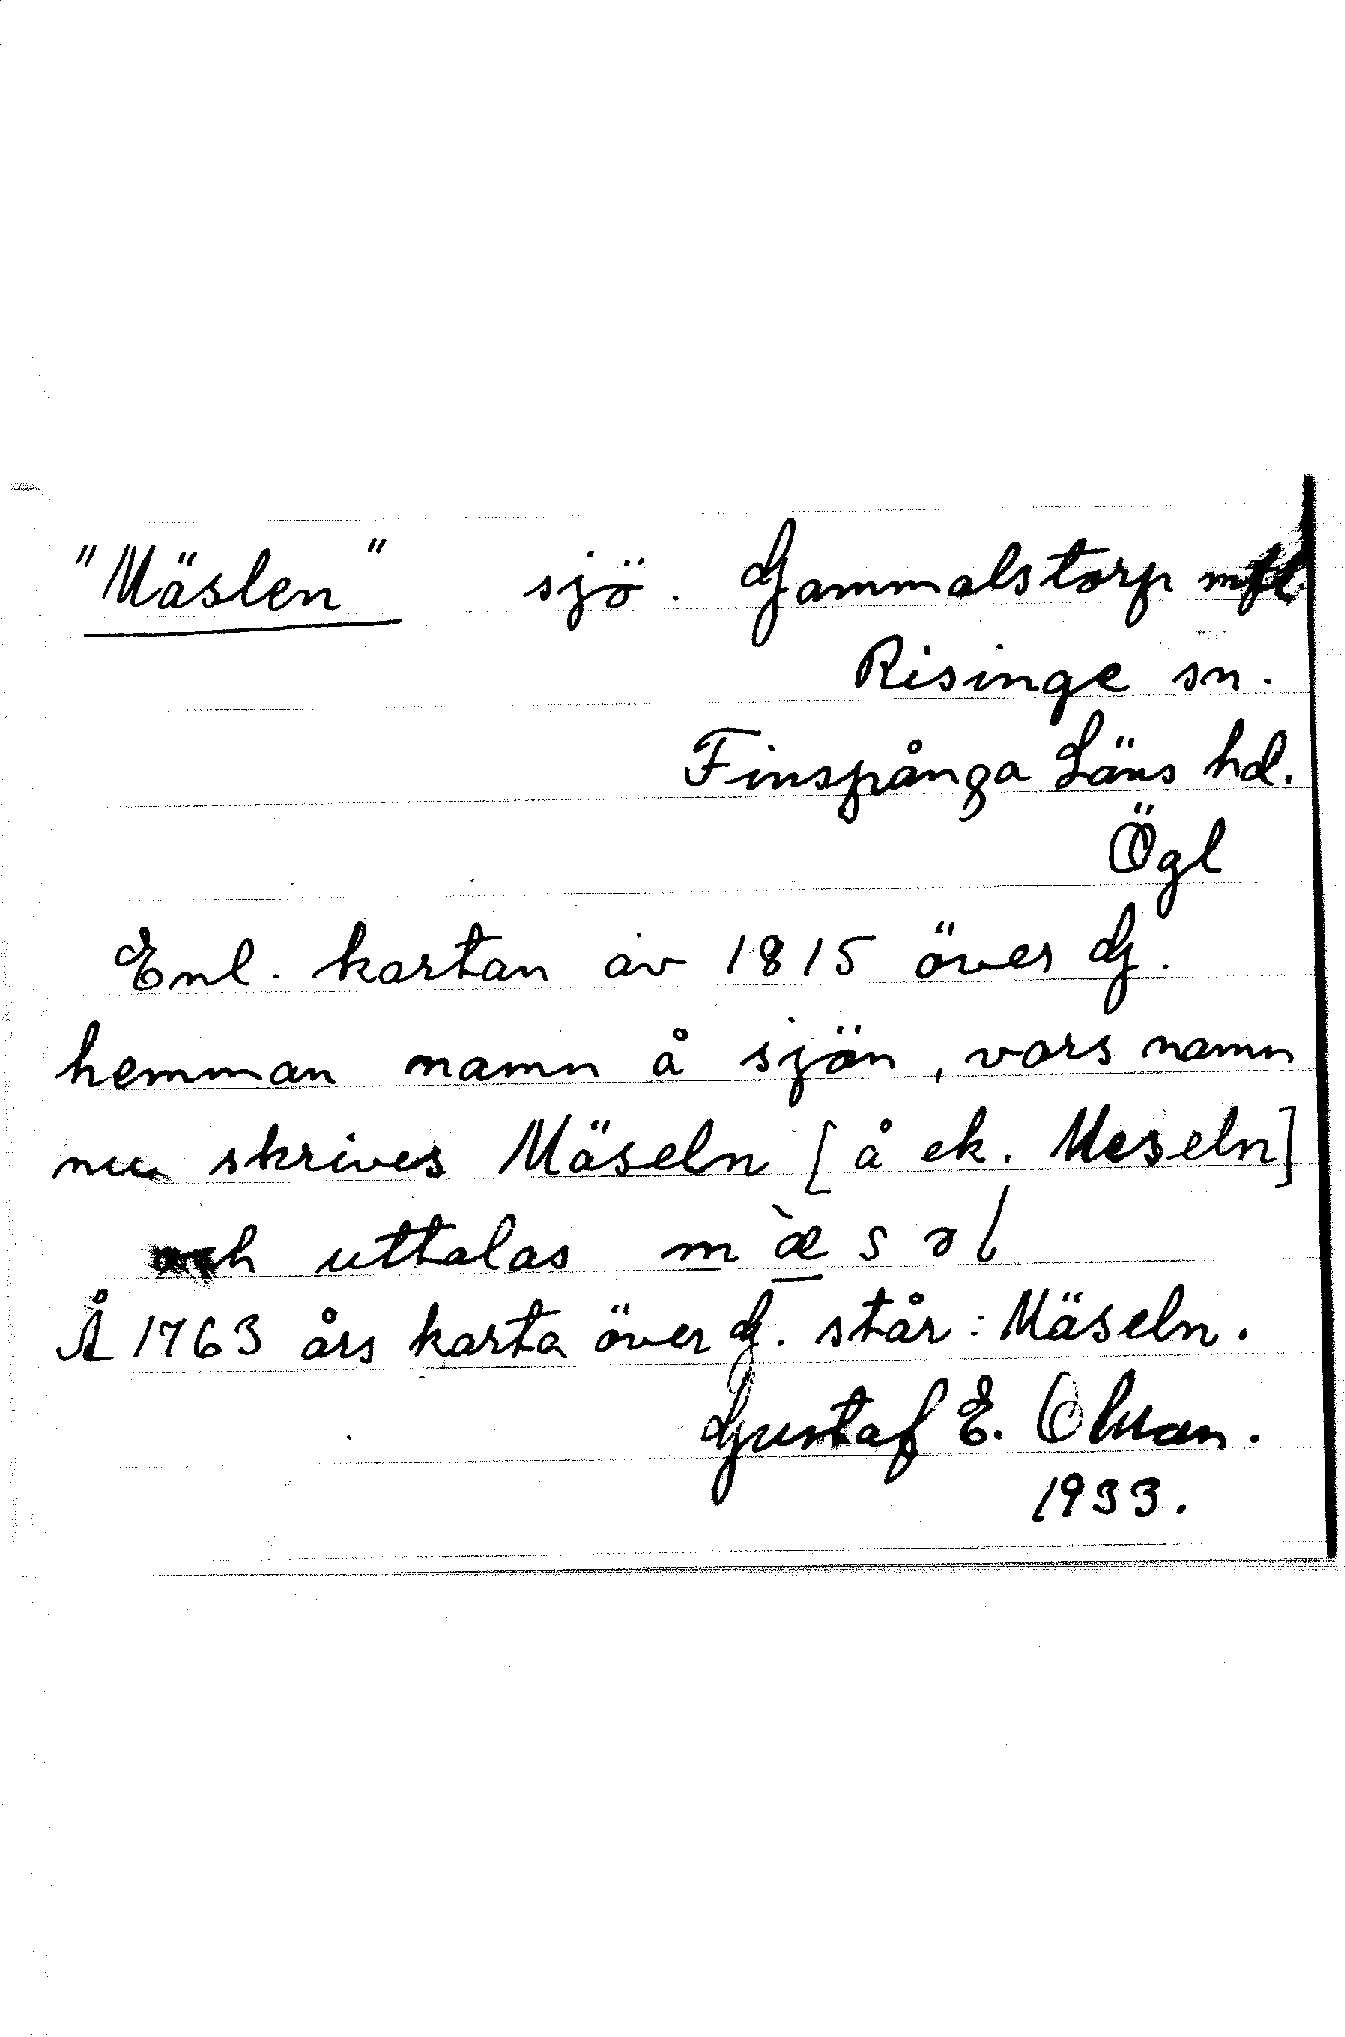 "Mäslen" sjö. Gammalstorp mfl.
Risinge sn.
Finspånga Läns hd.
Ögl
Enl. kartan av 1815 över G.
hemman namn å sjön, vars namn
nu skrives Mäseln [å ek. Meseln]
och uttalas m æ̀ s ə l
Å 1763 års karta över G. står: Mäseln.
Gustaf E. Olsson.
1933.